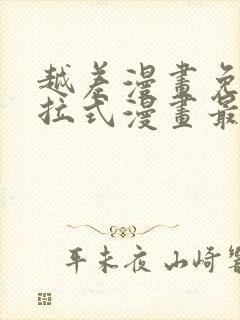 越差漫畫免
拉式漫畫最
平未夜 山崎響